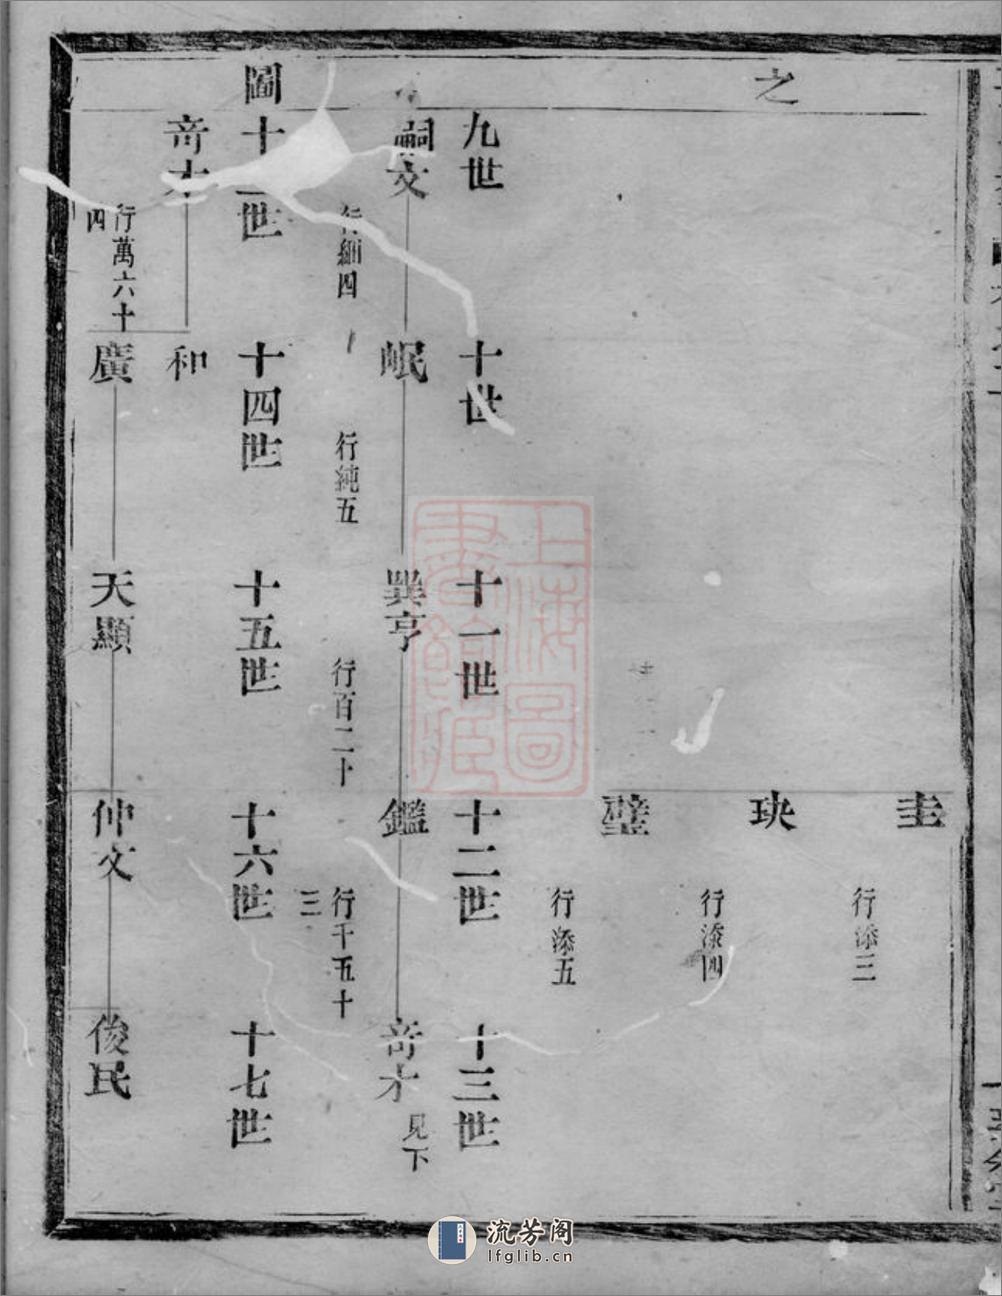 之
圭
行添三
玦
行添四
璧
行添五
九世
十世
十一世
十二世
十三世
嗣文
岷
巽亨
鑑
竒才
見下
行細四
行純五
行百二十
行千五十
三
圖
十三世
十四世
十五世
十六世
十七世
竒才
和
行萬六十
四
廣
天顯
仲文
俊民
上海圖
書館藏
流芳阁
lfglib.cn